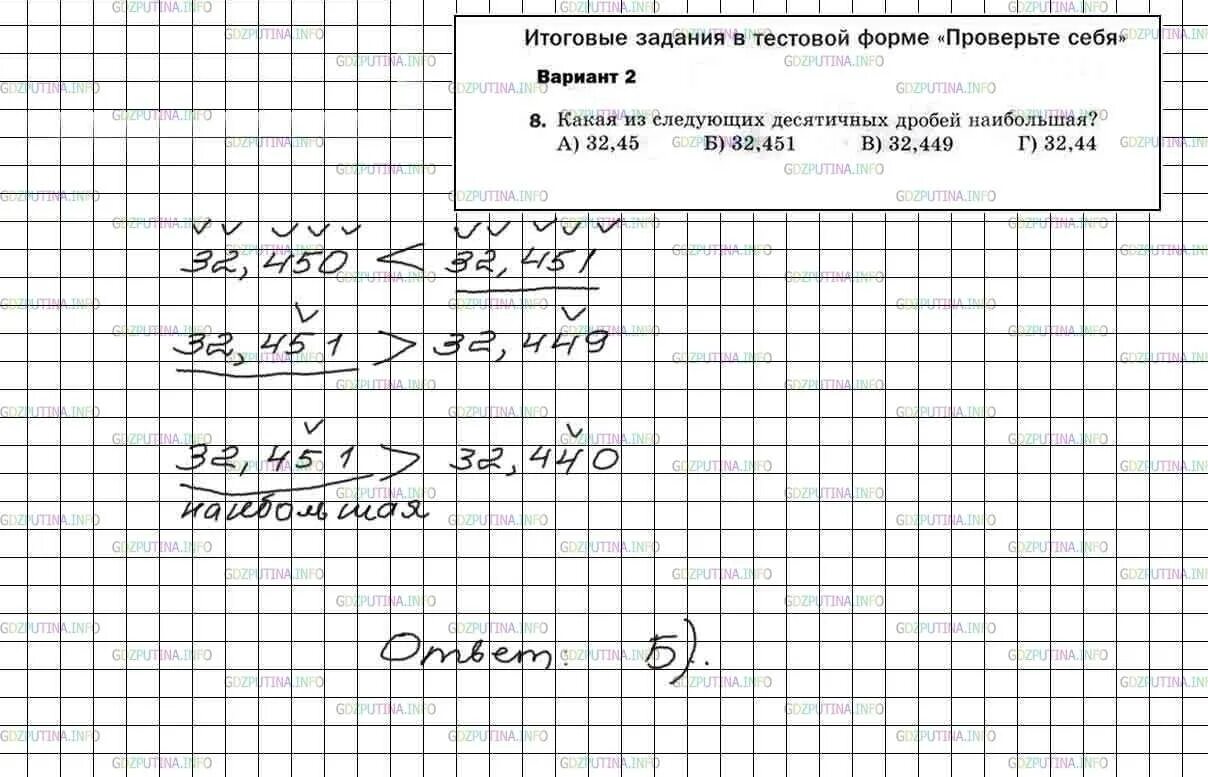 Итоговые задания в тестовой форме «Проверьте себя»
Вариант 2
8. Какая из следующих десятичных дробей наибольшая?
А) 32,45 Б) 32,451 В) 32,449 Г) 32,44
32,450 < 32,451
32,451 > 32,449
32,451 > 32,440
наибольшая
Ответ: Б).
GDZPUTINA.INFO